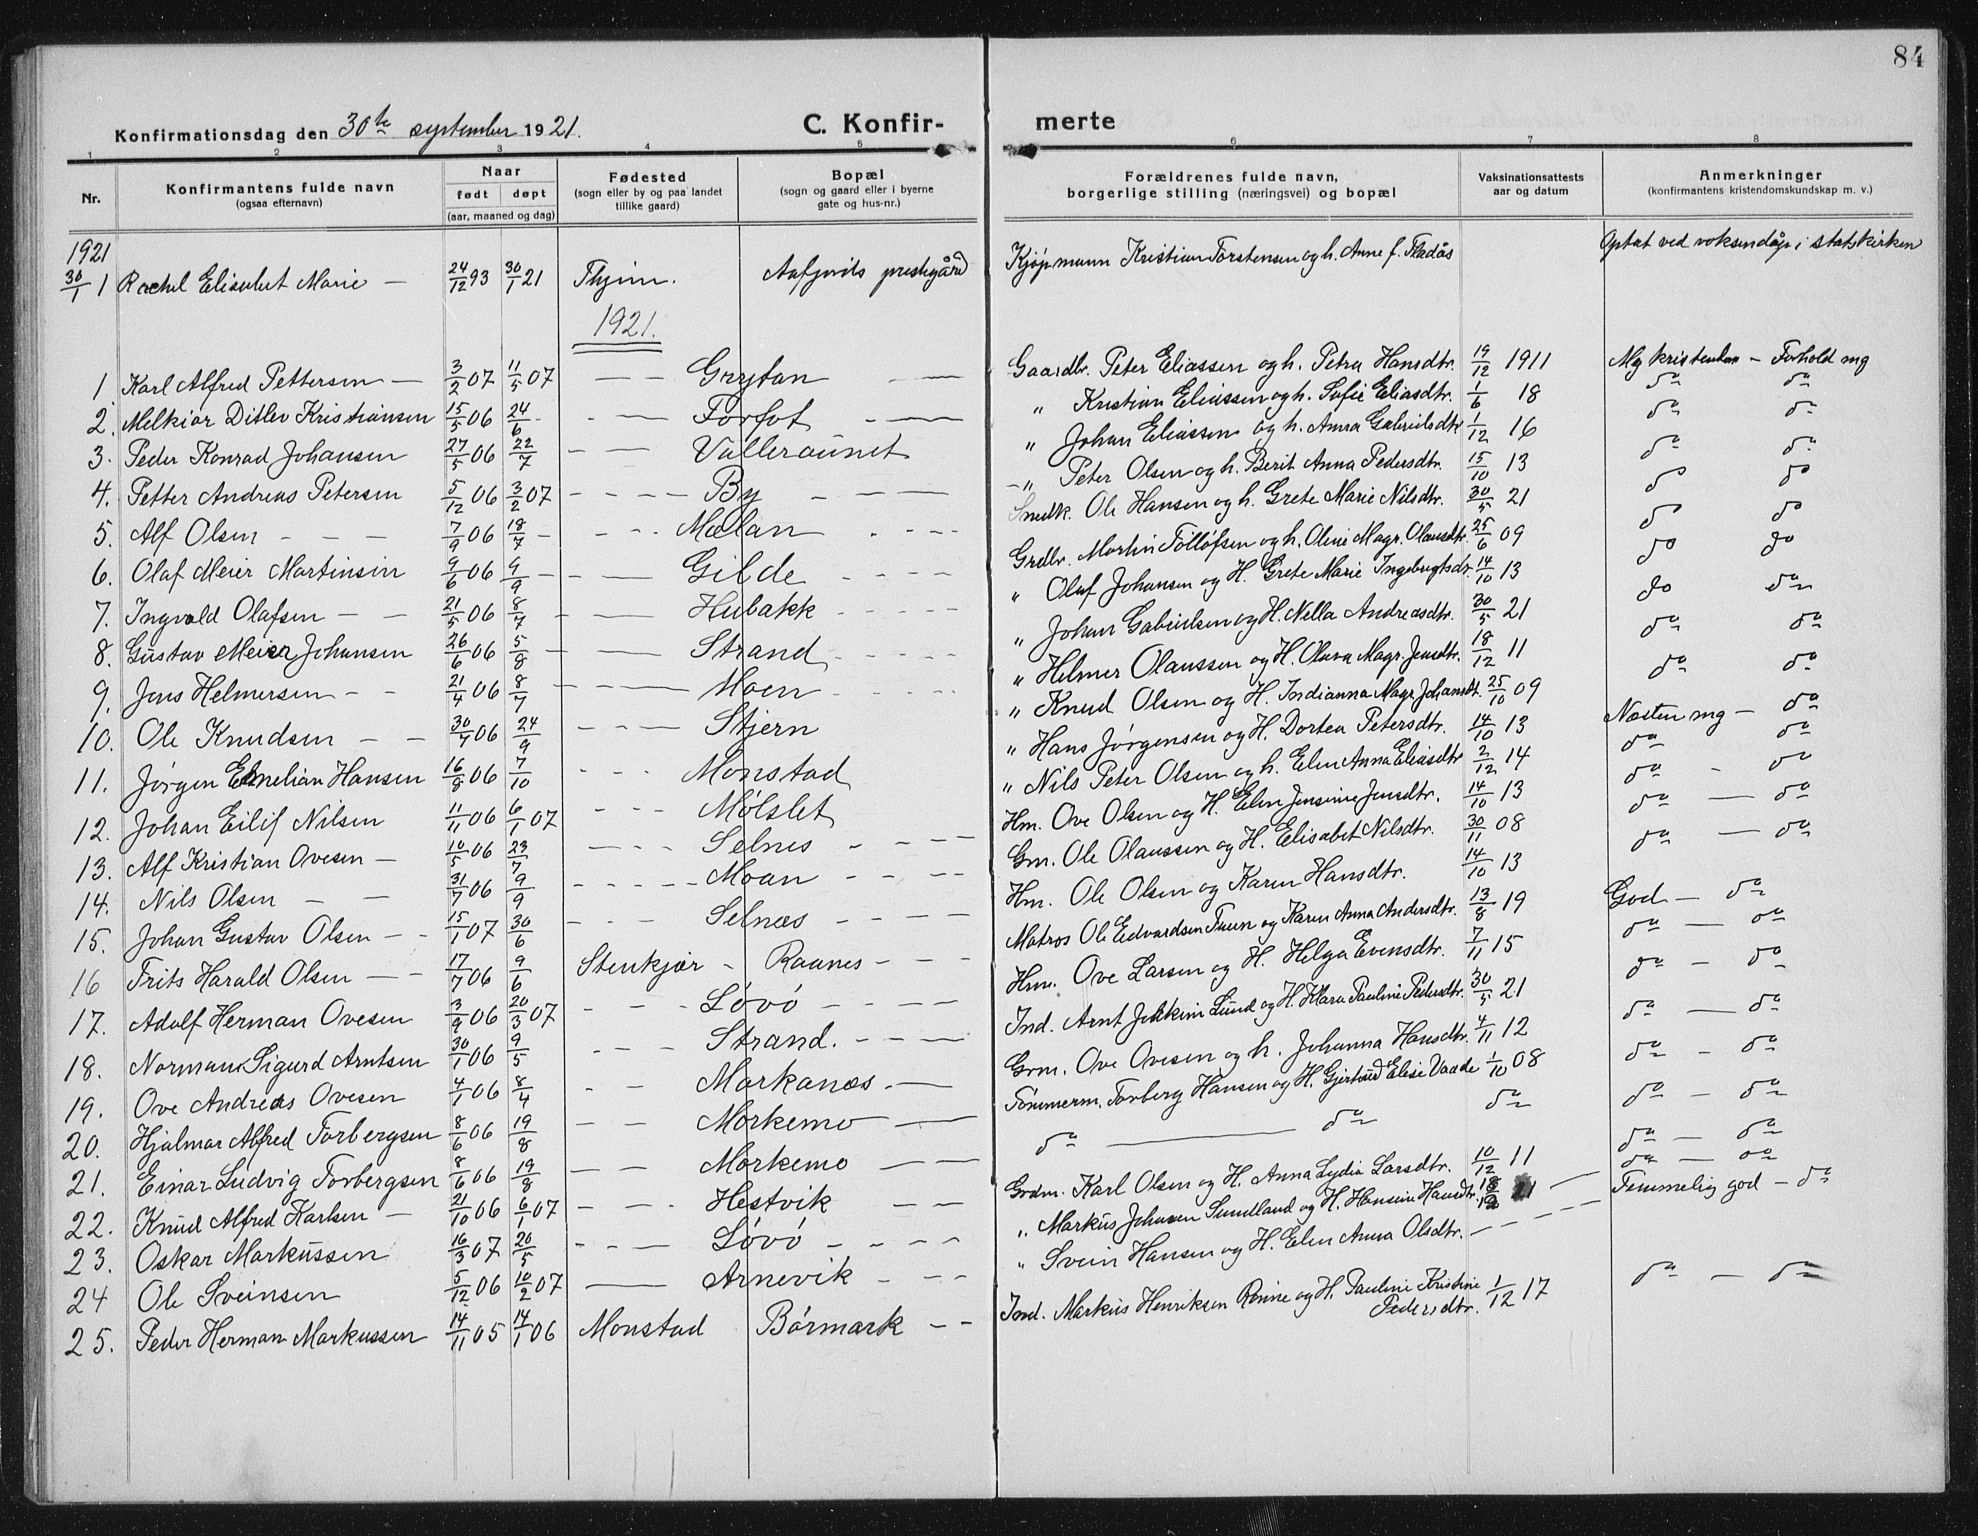 84
Konfirmationsdag den 30te september 1921. C. Konfir- merte
1 2 3 4 5 6 7 8
Nr. Konfirmantens fulde navn (ogsaa efternavn) Naar født døpt (aar, maaned og dag) Fødested (sogn eller by og paa landet tillike gaard) Bopæl (sogn og gaard eller i byerne gate og hus-nr.) Forældrenes fulde navn, borgerlige stilling (næringsvei) og bopæl Vaksinationsattests aar og datum Anmerkninger (konfirmantens kristendomskundskap m. v.)
1921
30/1 1 Rachel Elisabet Marie — 24/12 93 30/1 21 Thjim. Aafjords prestegård Kjøpmann Kristian Torstensen og h. Anne f. Fladås Optat ved voksendåp i statskirken
1921.
1 Karl Alfred Pettersen — 3/2 07 11/5 07 — — Grytan — — Gaardbr. Peter Eliassen og h. Petra Hansdtr. 19/12 1911 Mg kristendom — Forhold mg
2. Melkior Ditlev Kristiansen 15/5 06 24/6 - — Forfot — " Kristian Eliassen og h. Sofie Eliasdtr. 1/6 18 do do
3. Peder Konrad Johansen 27/5 06 22/7 — — Valleraunet " Johan Eliassen og h. Anna Gabrielsdtr. 1/12 16 do do
4. Petter Andreas Petersen 5/12 06 3/2 07 — — By — — " Peter Olsen og h. Berit Anna Pedersdtr. 15/10 13 do do
5. Alf Olsen — — — 7/9 06 18/7 - — Mælan - - - Snedk. Ole Hansen og h. Grete Marie Nilsdtr. 30/5 21 do do
6. Olaf Meier Martinsen 9/6 06 9/9 — — Gilde - - - Grdbr. Martin Tølløfsen og h. Oline Magr. Olausdtr. 25/6 09 do do
7. Ingvald Olafsen — — 21/5 06 8/7 — — Hubakk - - - " Olaf Johansen og H. Grete Marie Ingebrigtsdr. 14/10 13 do do
8. Gustav Meier Johansen 26/6 06 5/8 — — Strand - - - " Johan Gabrielsen og H. Nella Andreasdtr. 30/5 21 do do
9. Jens Helmersen — — 21/4 06 8/7 — — Moen - - - " Helmer Olaussen og H. Olava Magr. Jensdtr. 18/12 11 do do
10. Ole Knudsen — — 30/7 06 24/9 - - — Stjern " Knud Olsen og H. Indianna Magr. Johansdt. 25/10 09 do do
11. Jørgen Emelian Hansen 16/8 06 7/10 - - — Monstad " Hans Jørgensen og H. Dortea Petersdtr. 14/10 13 Næsten mg — do
12. Johan Eilif Nilsen 11/11 06 6/1 07 - - — Mølslet " Nils Peter Olsen og h. Elen Anna Eliasdtr 2/12 14 do do
13. Alf Kristian Ovesen — 10/5 06 23/7 - - — Selnes - - — Hm. Ove Olsen og H. Elen Jensine Jensdtr. 14/10 13 do - do
14. Nils Olsen — — 31/7 06 9/9 - - - Moan - - — Gm. Ole Olaussen og H. Elisabet Nilsdtr. 30/11 08 do — do
15. Johan Gustav Olsen — - 15/1 07 30/6 - - — Selnæs - - - Hm. Ole Olsen og Karen Hansdtr. 14/10 13 do — do
16 Frits Harald Olsen — - 17/7 06 9/6 Stenkjær - Raanes - - - Matros Ole Edvardsen Tuun og Karen Anna Andersdtr. 13/8 19 God — do
17. Adolf Herman Ovesen 3/9 06 20/3 07 - - - Løvø - - — Hm. Ove Larsen og H. Helga Evensdtr. 7/11 15 do — do
18. Norman Sigurd Arntsen 30/1 06 9/5 - - — Strand. - - — Ind. Arnt Jokkim Lund og H. Klara Pauline Pedersdtr. 30/5 21 do - do
19. Ove Andreas Ovesen 4/1 06 8/4 - - Markanæs. — Grm. Ove Ovesen og h. Johanna Hansdtr. 4/11 12 do — do
20. Hjalmar Alfred Torbergsen 8/6 06 19/8 - — Morkemo — Tømmerm. Torberg Hansen og H. Gjertrud Elise Vaade 1/10 08 do - do
21. Einar Ludvig Torbergsen 8/6 06 19/8 — — Morkemo — — do — do do do - do
22. Knud Alfred Karlsen — 21/10 06 6/1 07 - - - Hestvik — — Grdm. Karl Olsen og H. Anna Lydia Larsdtr. 10/12 11 do — do
23. Oskar Markussen 16/3 07 20/5 - - — Løvø - - - " Markus Johnsen Sundland og H. Hansine Hansdtr. 21 — do — do
24 Ole Sveinsen 5/12 06 10/2 07 — Arnevik - - - " Svein Hansen og H. Elen Anna Olsdtr. - - - Temmelig god — do
25. Peder Herman Markussen 14/11 05 14/1 06 Monstad Børmark - - Ind. Markus Henriksen Rønne og H. Pauline Kristine Pedersdtr. 1/12 17 do — do